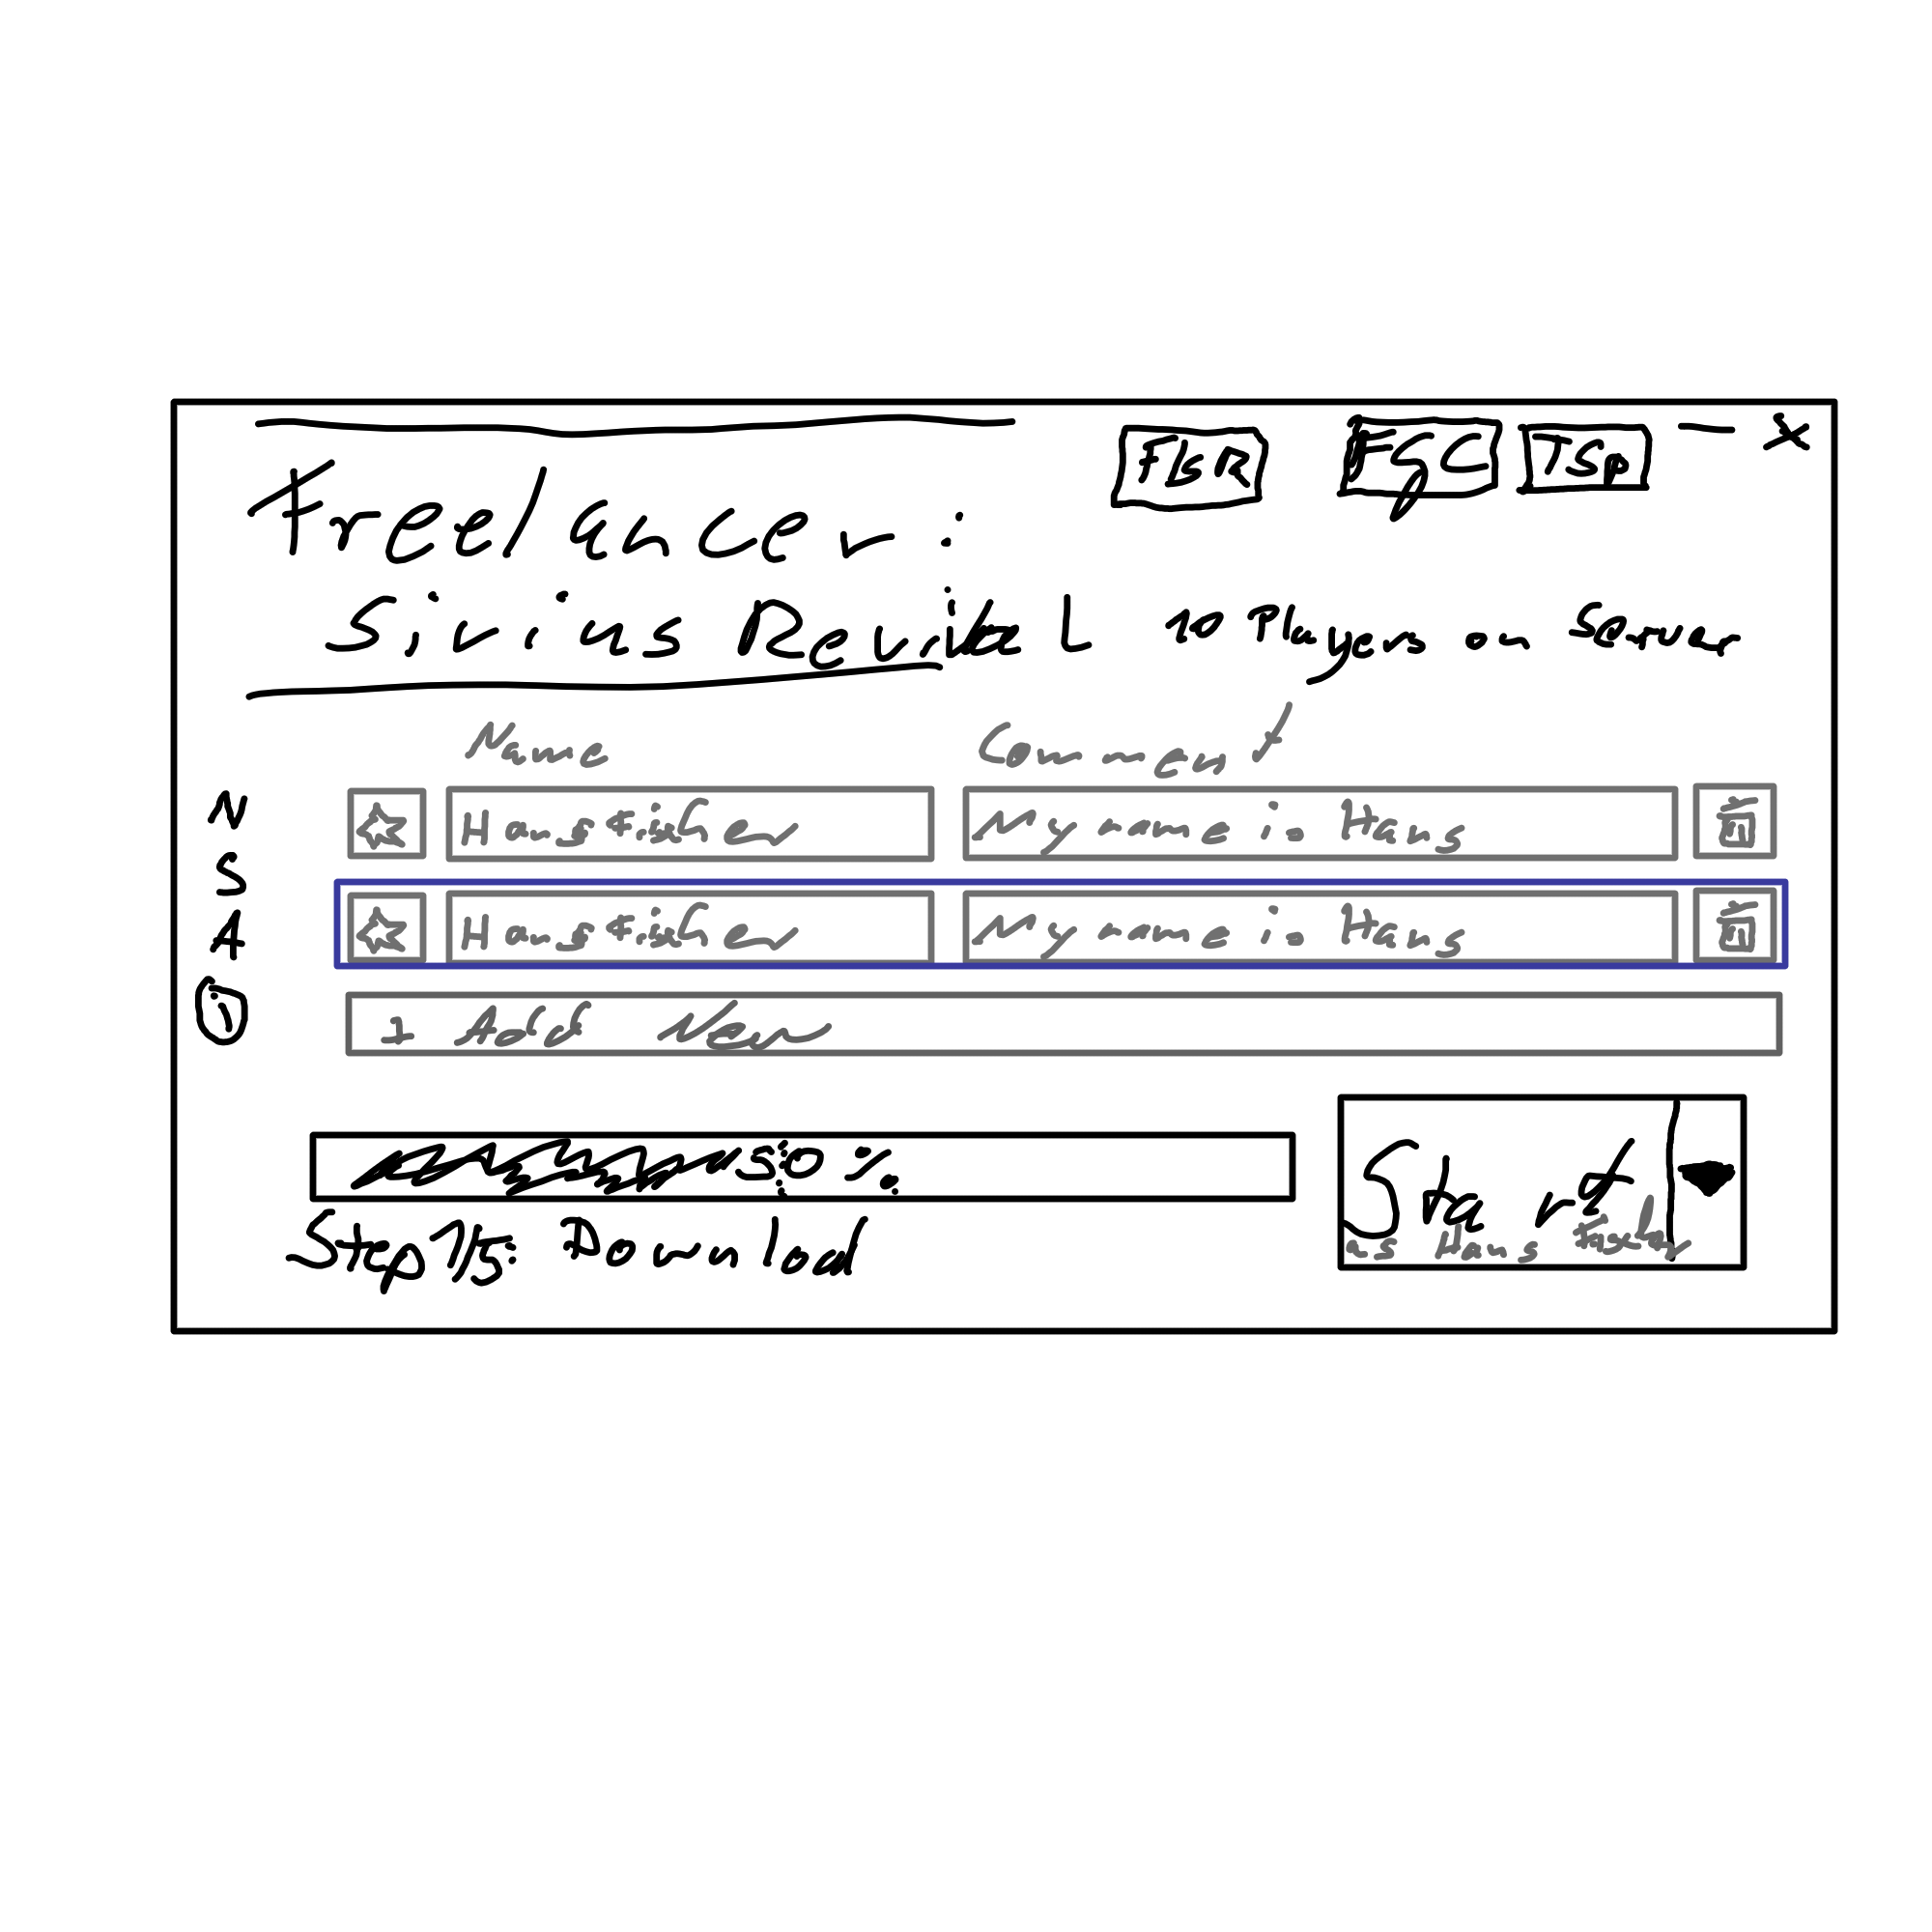 Freelancer:
Sirius Revival
10 Players on Server
Name Comment
N
S
A
Hans Tischler My name is Hans
Hans Tischler My name is Hans
+ Add New
50 %
Step 1/5: Download
Start
as Hans